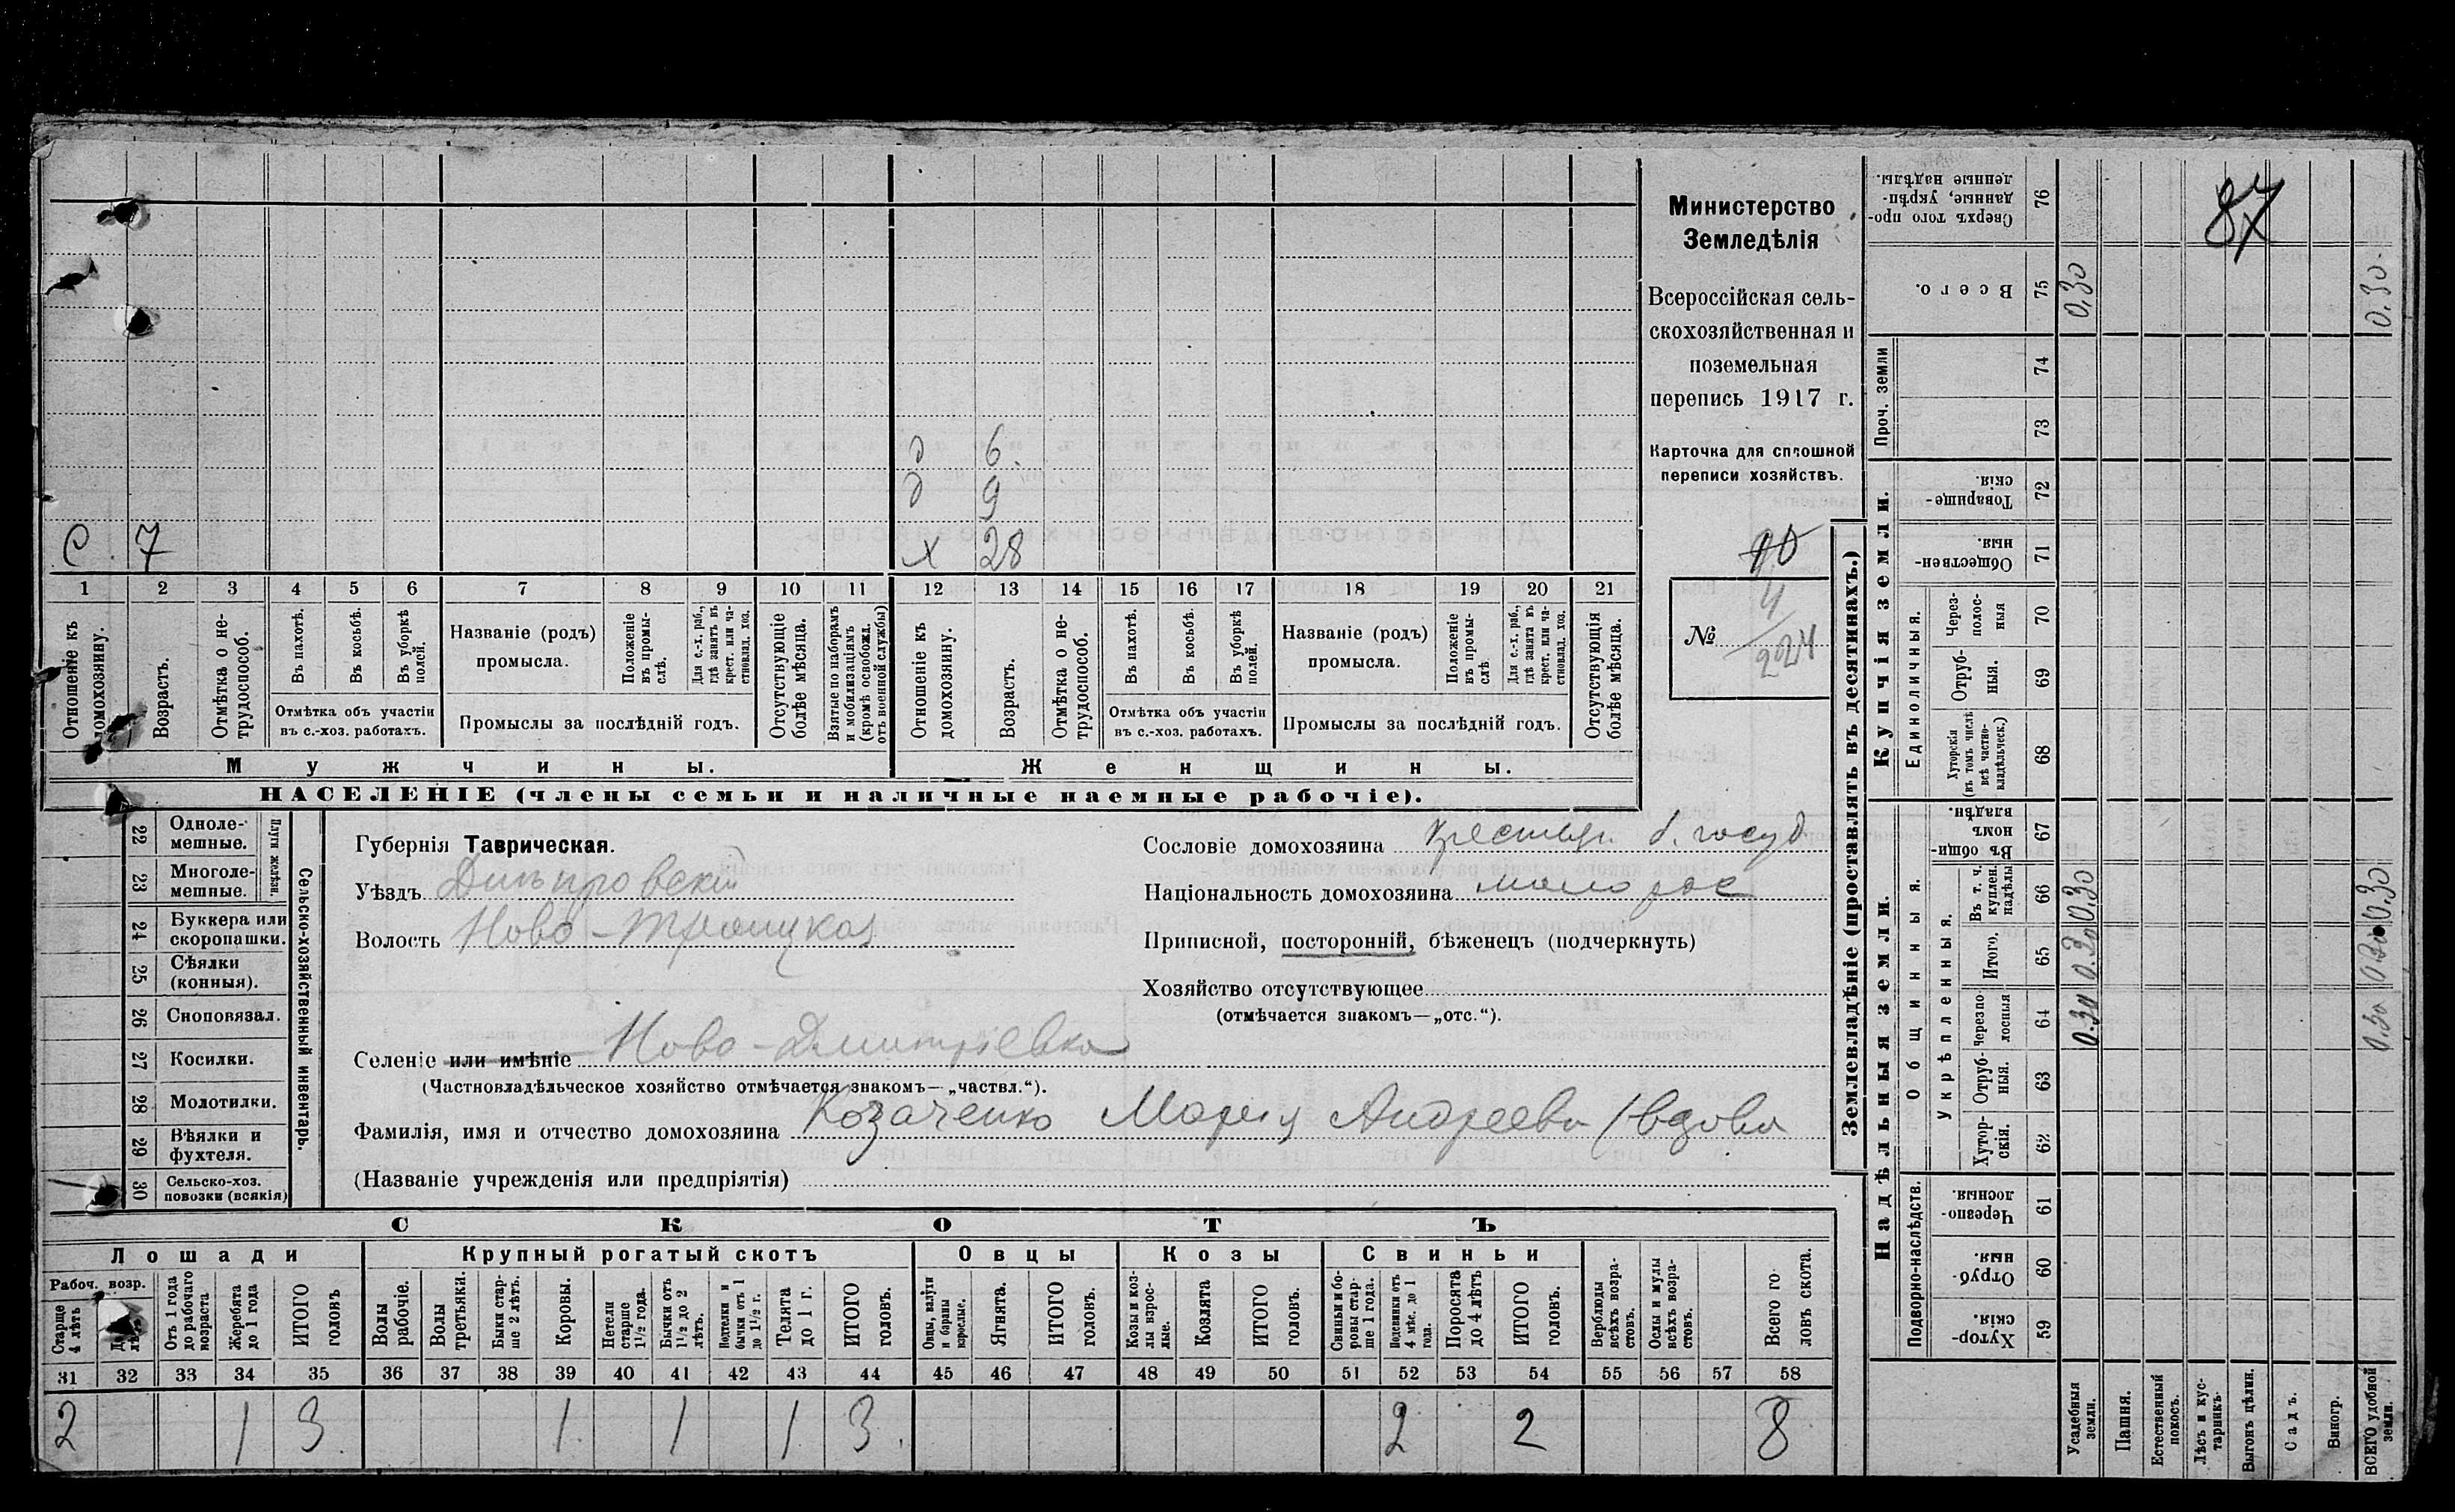 с. 7
д 6.
д 9
х 28
1 2 3 4 5 6 7 8 9 10 11 12 13 14 15 16 17 18 19 20 21
Отношеніе къ домохозяину.
Возрастъ.
Отмѣтка о нетрудоспособ.
Въ пахотѣ.
Въ косьбѣ.
Въ уборкѣ полей.
Отмѣтка объ участіи
въ с.-хоз. работахъ.
Названіе (родъ)
промысла.
Положеніе въ промыслѣ.
Для с.-х. раб., гдѣ занятъ въ крест. или частновлад. хоз.
Промыслы за послѣдній годъ.
Отсутствующіе болѣе мѣсяца.
Взятые по наборамъ и мобилизаціямъ (кромѣ освобожд. отъ военной службы)
Отношеніе къ домохозяину.
Возрастъ.
Отмѣтка о нетрудоспособ.
Въ пахотѣ.
Въ косьбѣ.
Въ уборкѣ полей.
Отмѣтка объ участіи
въ с.-хоз. работахъ.
Названіе (родъ)
промысла.
Положеніе въ промыслѣ
Для с.-х. раб., гдѣ занятъ въ крест. или частновлад. хоз.
Промыслы за послѣдній годъ.
Отсутствующія болѣе мѣсяца.
Мужчины.
Женщины.
НАСЕЛЕНІЕ (члены семьи и наличные наемные рабочіе).
Министерство
Земледѣлія
Всероссійская сель-
скохозяйственная и
поземельная
перепись 1917 г.
Карточка для сплошной
переписи хозяйствъ.
10
№ 4/224
22 Однолемешные.
23 Многолемешные.
Плуги желѣзн.
24 Буккера или скоропашки.
25 Сѣялки (конныя).
26 Сноповязал.
27 Косилки.
28 Молотилки.
29 Вѣялки и фухтеля.
30 Сельско-хоз. повозки (всякія)
Сельско-хозяйственный инвентарь.
Губернія Таврическая.
Уѣздъ Днѣпровскій
Волость Ново-Троицкая
Селеніе или имѣніе Ново-Дмитріевка
(Частновладѣльческое хозяйство отмѣчается знакомъ—„частвл.“).
Фамилія, имя и отчество домохозяина Козаченко Мария Андреева (вдова
(Названіе учрежденія или предпріятія)
Сословіе домохозяина крестьян. б. госуд
Національность домохозяина малорос
Приписной, посторонній, бѣженецъ (подчеркнуть)
Хозяйство отсутствующее
(отмѣчается знакомъ—„отс.“).
СКОТЪ
Лошади
Крупный рогатый скотъ
Овцы
Козы
Свиньи
Рабоч. возр.
Старше 4 лѣтъ
Отъ 1 года до рабочаго возраста
Жеребята до 1 года
ИТОГО головъ
Волы рабочіе.
Волы третьяки.
Быки старше 2 лѣтъ.
Коровы.
Нетели старше 1½ года.
Бычки отъ 1½ до 2 лѣтъ.
Подтелки и бычки отъ 1 до 1½ г.
Телята до 1 г.
ИТОГО головъ.
Овцы, валухи и бараны взрослые.
Ягнята.
ИТОГО головъ.
Козы и козлы взрослые.
Козлята
ИТОГО головъ.
Свиньи и боровы старше 1 года.
Подсвинки отъ 4 мѣс. до 1 года.
Поросята до 4 лѣтъ
ИТОГО головъ.
Верблюды всѣхъ возрастовъ.
Ослы и мулы всѣхъ возрастовъ.
Всего головъ скота.
31 32 33 34 35 36 37 38 39 40 41 42 43 44 45 46 47 48 49 50 51 52 53 54 55 56 57 58
2 1 3 1 1 1 3. 2 2 8
Землевладѣніе (проставлять въ десятинахъ.)
Купчія земли.
Надѣльныя земли.
Сверхъ того проданные, укрѣпленные надѣлы. 76
Всего. 75 0,30 0.30
Проч. земли 74 73
Товарищескія 72
Общественныя. 71
Единоличныя.
Черезполосныя 70
Отрубныя. 69
Хуторскія (въ томъ числѣ всѣ частновладѣльческ.) 68
Общинныя.
Въ общинномъ владѣн. 67
Укрѣпленныя.
Въ т. ч. куплен. надѣлы 66 0.30 0.30
Итого. 65 0.30 0.30
черезполосныя 64 0.30 0.30
Отрубныя. 63
Хуторскія. 62
Подворно-наслѣдств.
Черезполосныя. 61
Отрубныя. 60
Хуторскія. 59
Усадебныя земли.
Пашня.
Естественный покосъ.
Лѣсъ и кустарникъ.
Выгонъ цѣлин.
Садъ.
Виногр.
ВСЕГО удобной земли.
87